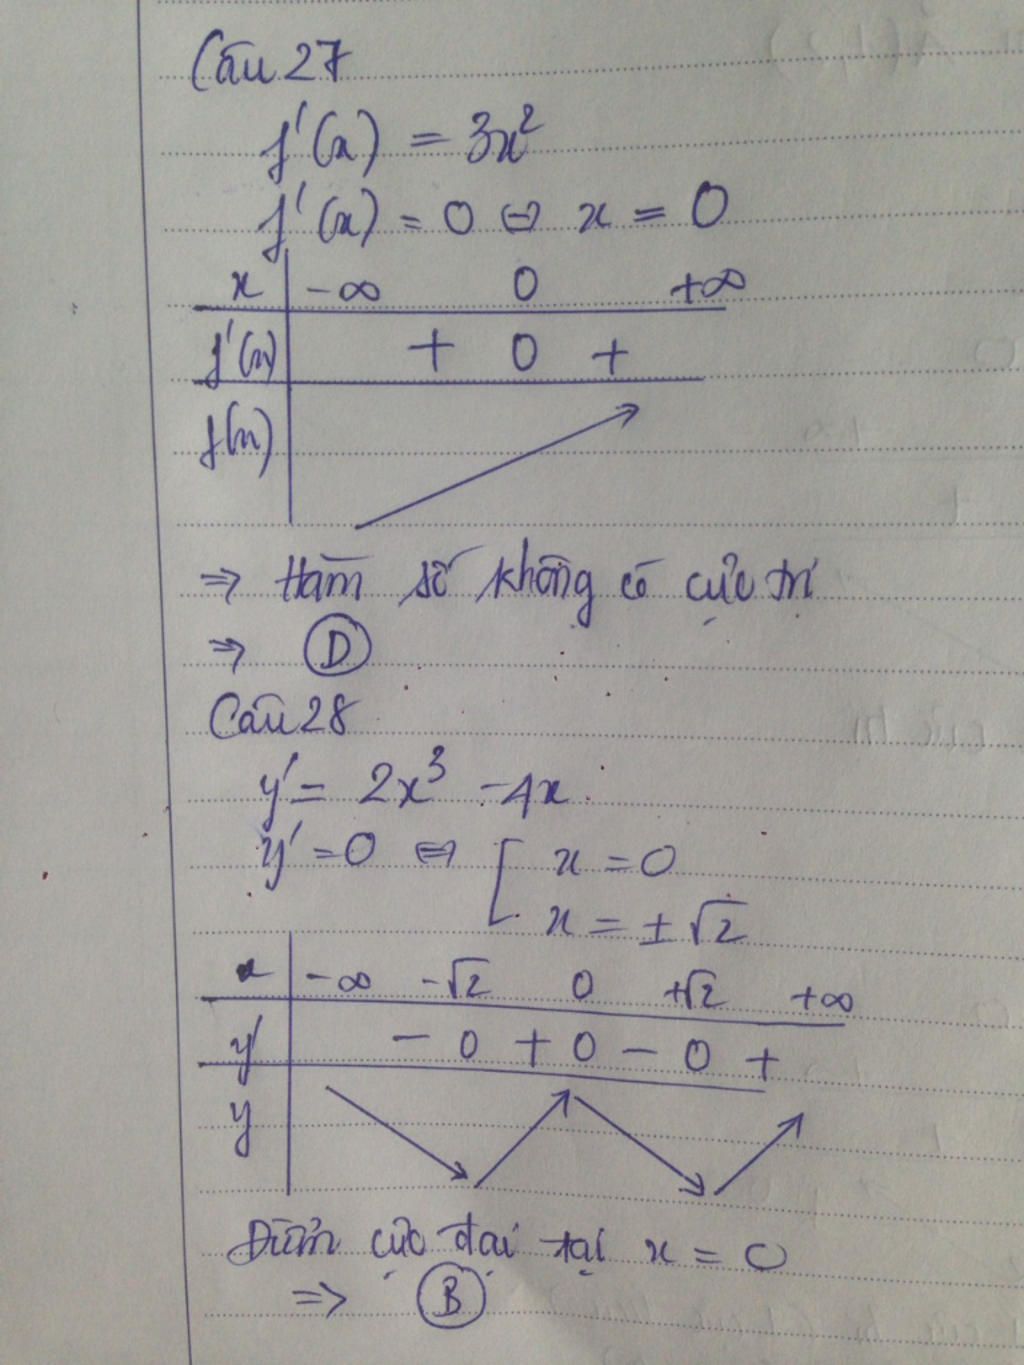 Câu 27
f'(x) = 3x²
f'(x) = 0 ⇔ x = 0
x -∞ 0 +∞
f'(x) + 0 +
f(x)
⇒ Hàm số không có cực trị
⇒ D
Câu 28
y' = 2x³ - 4x
y' = 0 ⇔ [ x = 0
x = ± √2
x -∞ -√2 0 +√2 +∞
y' - 0 + 0 - 0 +
y
Điểm cực đại tại x = 0
⇒ B